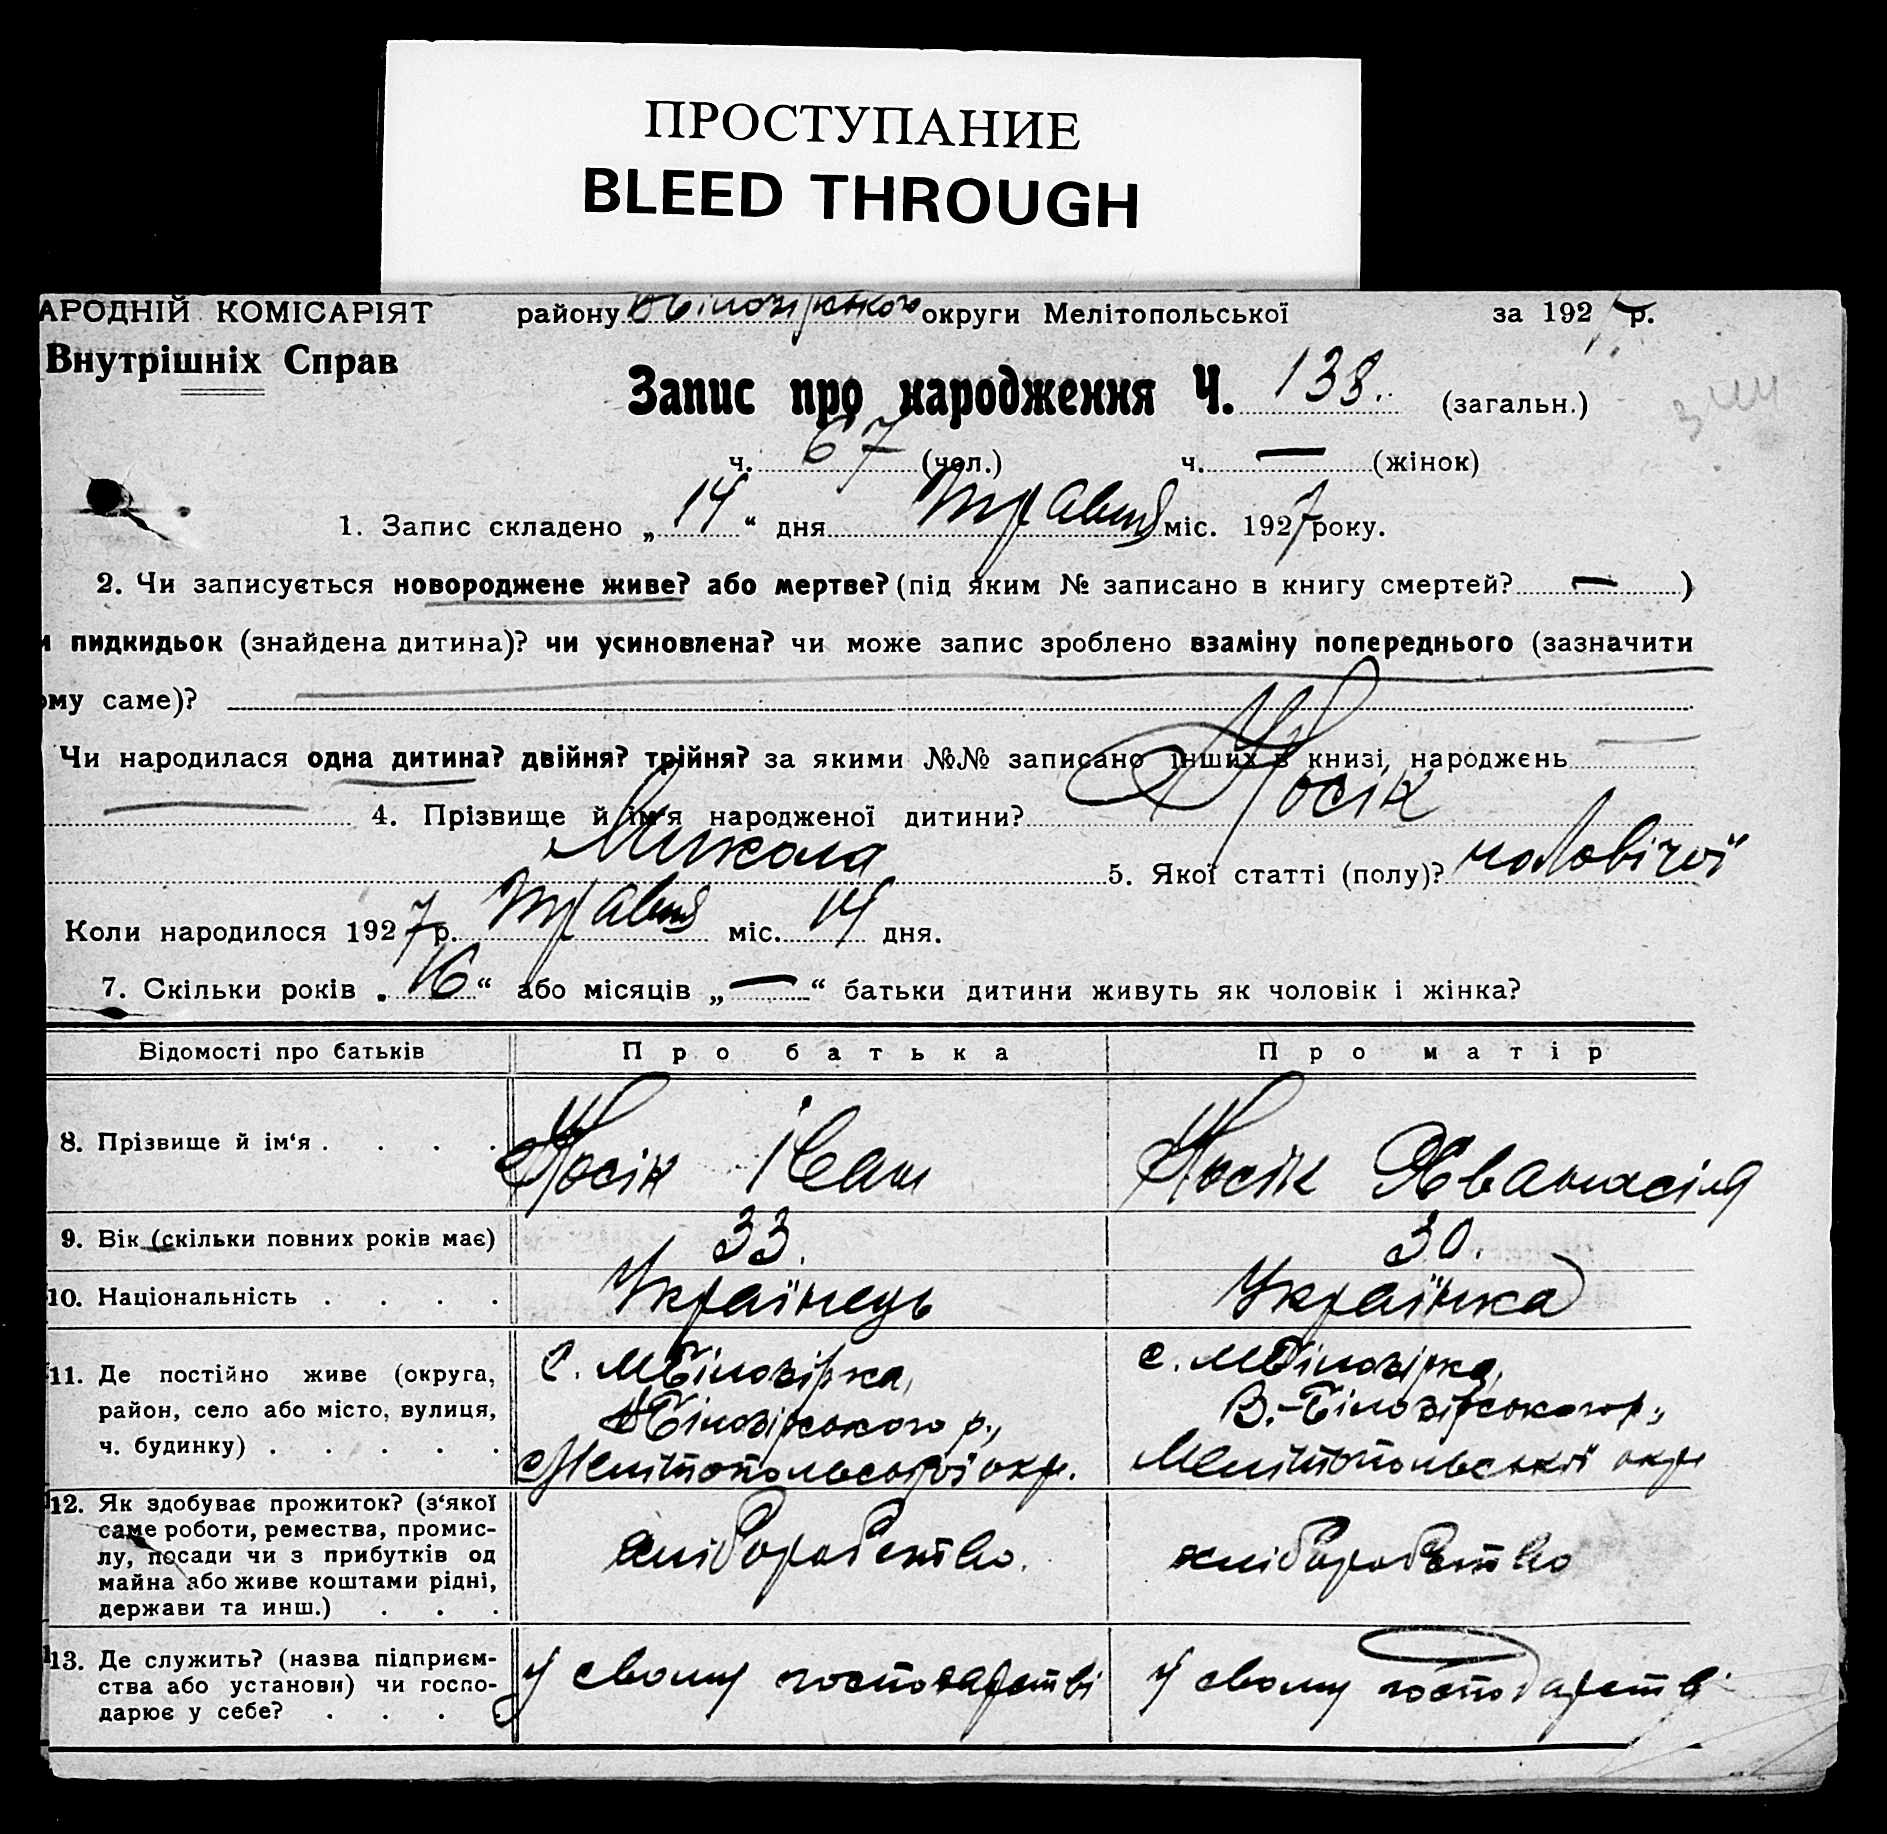 ПРОСТУПАНИЕ
BLEED THROUGH
АРОДНІЙ КОМІСАРІЯТ району Білозірського округи Мелітопольської за 1927 р.
Внутрішніх Справ
Запис про народження Ч. 138. (загальн.)
ч. 67 (чол.) ч. — (жінок)
1. Запис складено „14“ дня Травня міс. 1927 року.
2. Чи записується новороджене живе? або мертве? (під яким № записано в книгу смертей? — )
и пидкидьок (знайдена дитина)? чи усиновлена? чи може запис зроблено взаміну попереднього (зазначити
ому саме)?
Чи народилася одна дитина? двійня? трійня? за якими №№ записано інших в книзі народжень
4. Прізвище й ім'я народженої дитини? Носік
Микола 5. Якої статті (полу)? чоловічої
Коли народилося 1927 р. Травня міс. 14 дня.
7. Скільки років „16“ або місяців „—“ батьки дитини живуть як чоловік і жінка?
Відомості про батьків Про батька Про матір
8. Прізвище й ім‘я . . . . Носік Іван Носік Афанасія
9. Вік (скільки повних років має) 33. 30.
10. Національність . . . . Українець Українка
11. Де постійно живе (округа, район, село або місто, вулиця, ч. будинку) . . . . .
с. МБілозірка, Білозірського р., Мелітопольської окр.
с. МБілозірка, В.-Білозірського р., Мелітопольської окр
12. Як здобуває прожиток? (з‘якої саме роботи, ремества, промислу, посади чи з прибутків од майна або живе коштами рідні, держави та инш.) . . .
хліборобство. хліборобство
13. Де служить? (назва підприємства або установи) чи господарює у себе? . . . .
У свому господарстві У свому господарстві